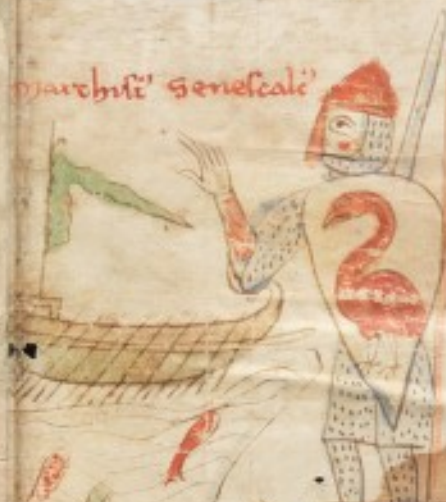 marchisiꝰ senescalcꝰ